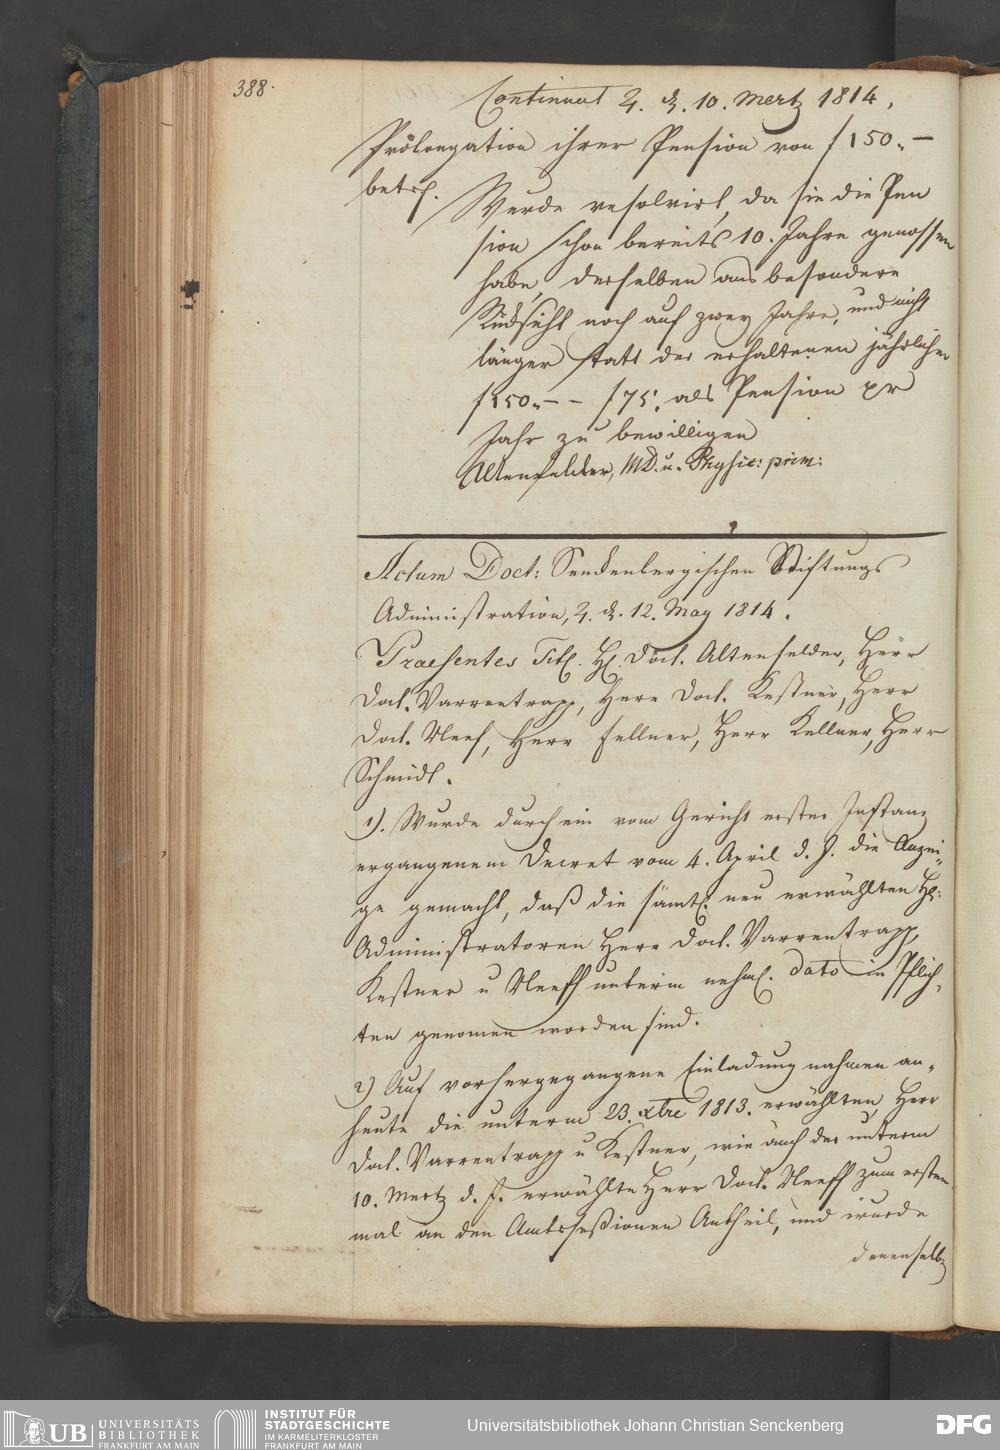 388.
Continuat ♃. d. 10. Mertz 1814.
Prolongation ihrer Pension von f 150.–
betrf.
Wurde resolvirt, da sie die Pen
sion schon bereits 10. Jahre genossen
habe, derselben aus besonderer
Rücksicht noch auf zwey Jahre, und nicht
länger statt der erhaltenen jährlichen
f 150.– – f 75. als Pension pr
Jahr zu bewilligen
Altenfelder, MD. u. Physic: prim:
Actum Doct: Senckenbergischen Stiftungs
Administration, ♃. d. 12. May 1814.
Praesentes Titl. H. Doct. Altenfelder, Herr
Doct. Varrentrapp, Herr Doct. Kestner, Herr
Doct. Neef, Herr Fellner, Herr Kellner, Herr
Schmidt.
1). Wurde durch ein vom Gericht erster Instanz
ergangenem Decret vom 4. April d. J. die Anzei„
ge gemacht, daß die sämtl. neu erwählten H:
Administratoren Herr Doct. Varrentrapp,
Kestner u Neeff unterm nehml. dato in Pflich„
ten genomen worden sind.
2) Auf vorhergegangene Einladung nahmen an„
heute die unterm 23. xbre 1813. erwählten Herr
Doct. Varrentrapp u Kestner, wie auch der unterm
10. Mertz d. J. erwählte Herr Doct. Neeff zum ersten
mal an den Amtsseßionen Antheil, und wurde
denenselb
UB UNIVERSITÄTS
BIBLIOTHEK
FRANKFURT AM MAIN
INSTITUT FÜR
STADTGESCHICHTE
IM KARMELITERKLOSTER
FRANKFURT AM MAIN
Universitätsbibliothek Johann Christian Senckenberg
DFG